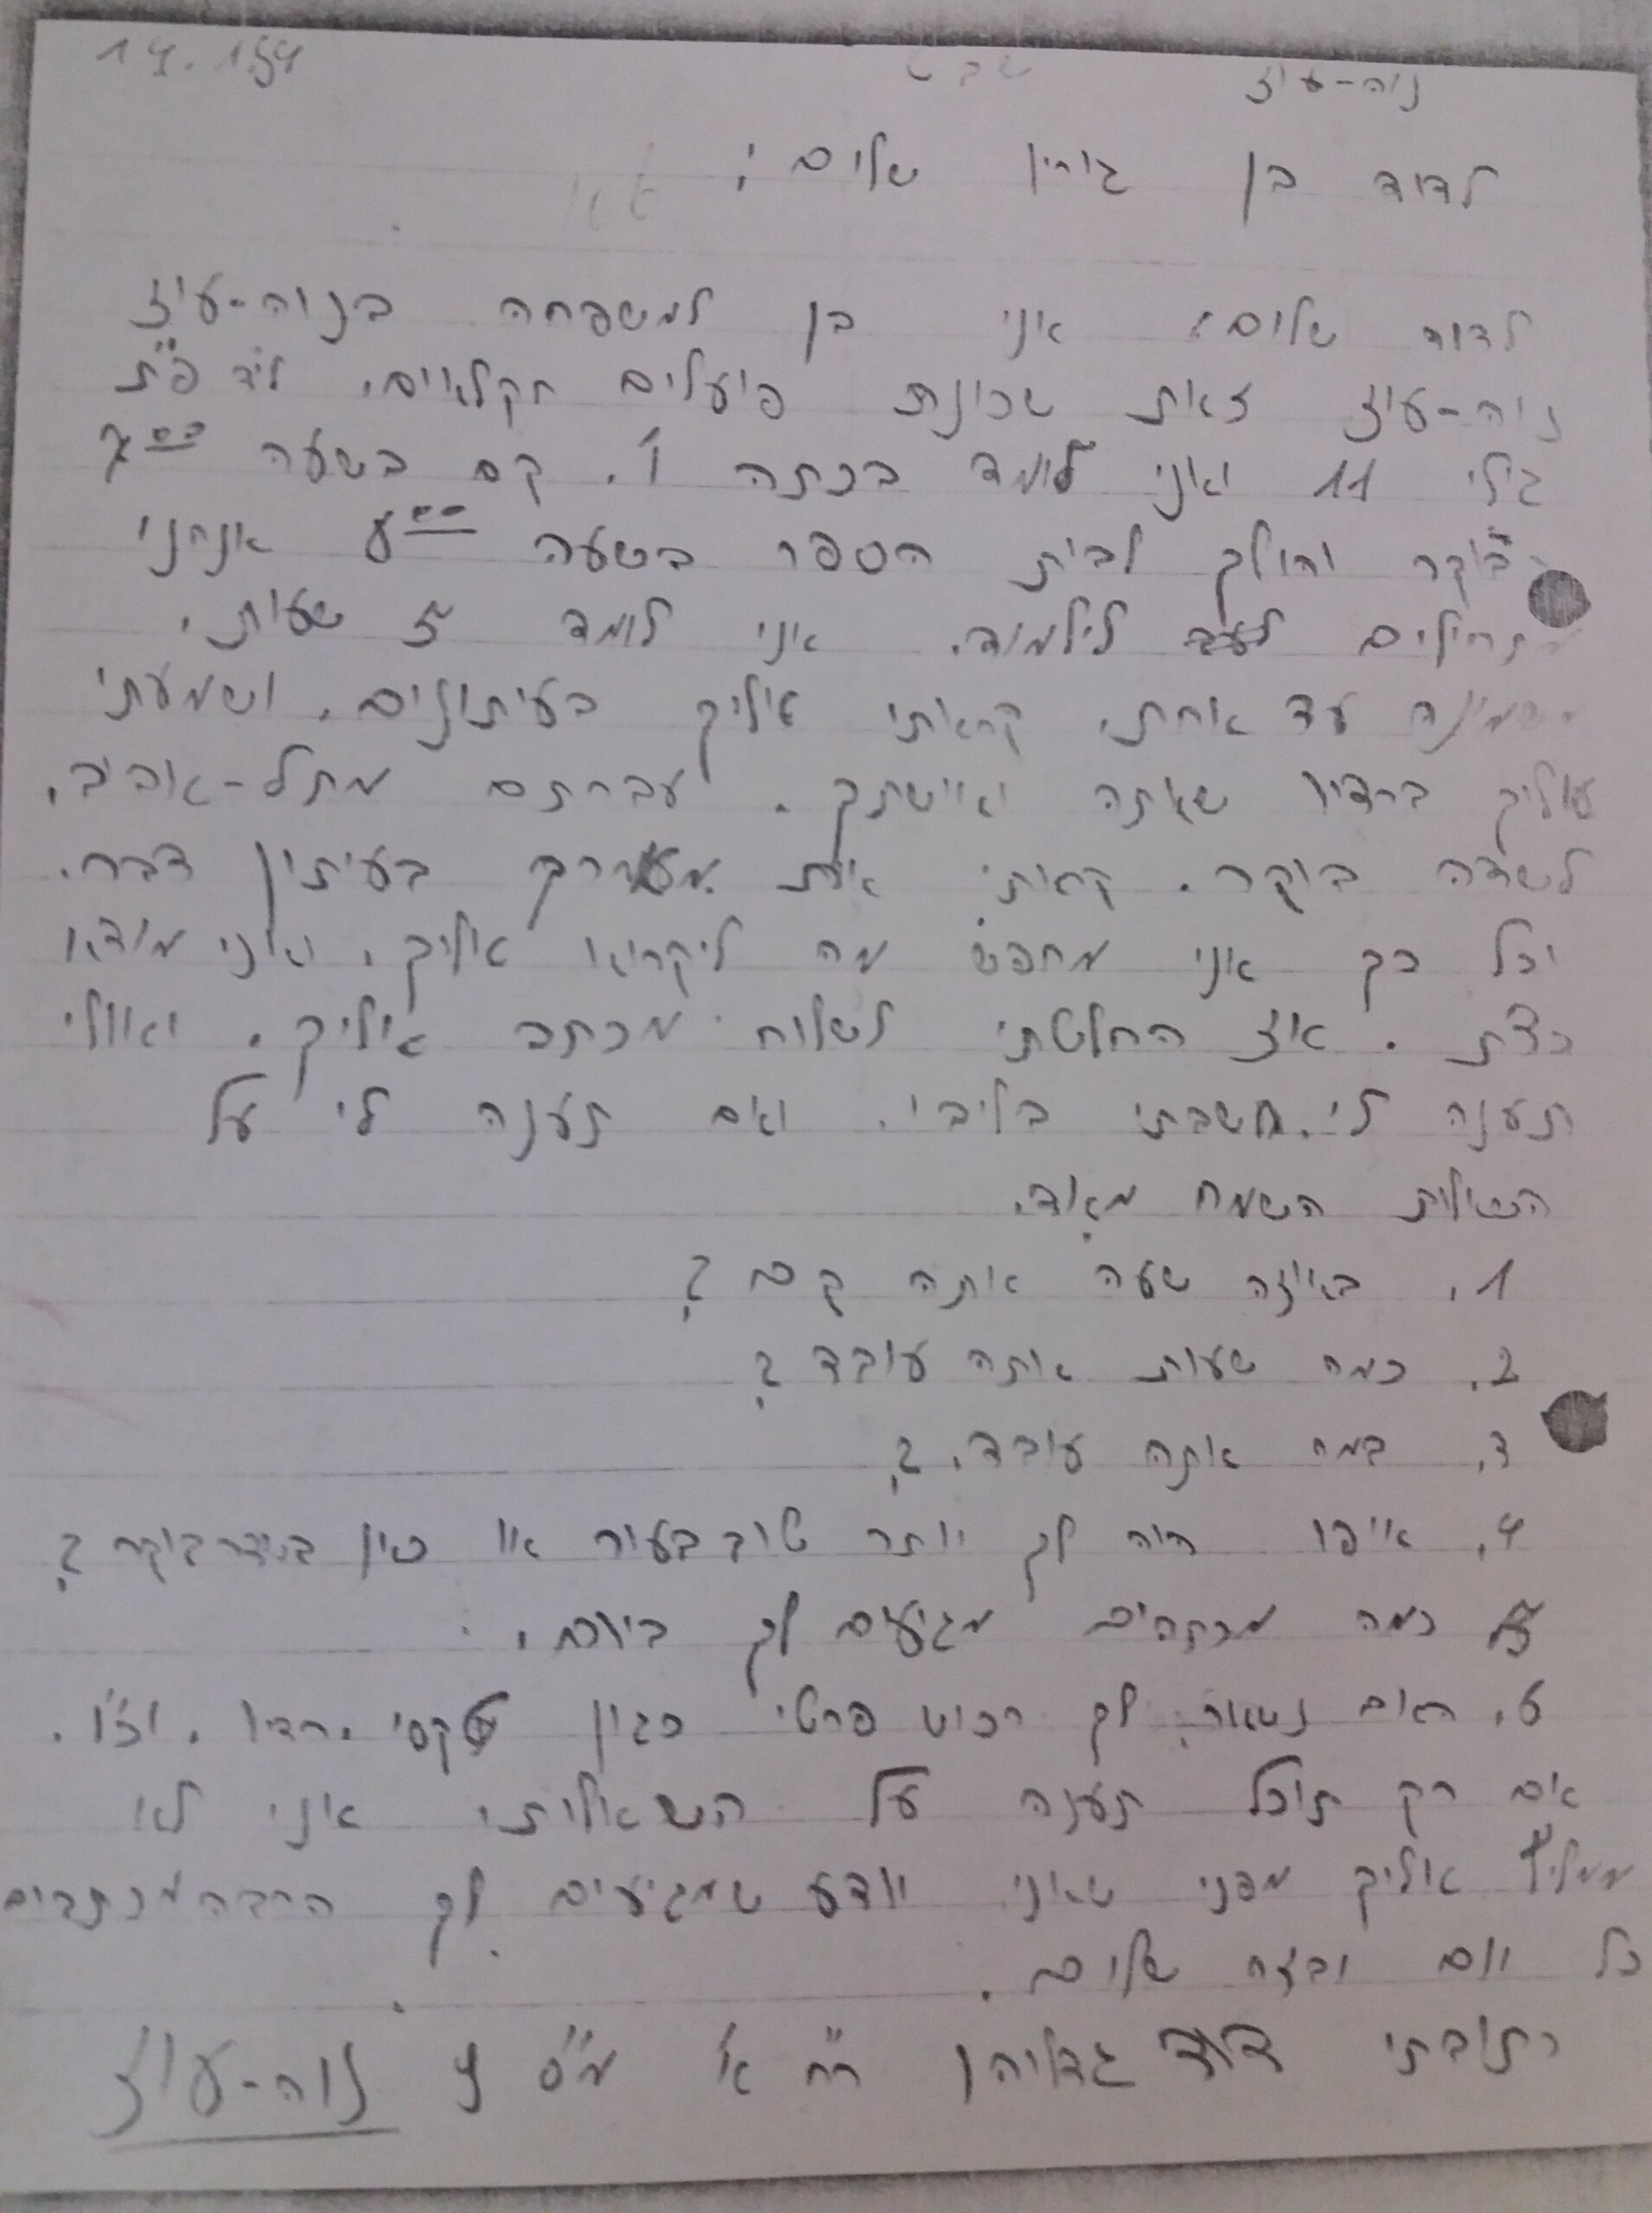 נוה-עוז שבט 14.1.54
לדוד בן גוריון שלום;
לדוד שלום; אני בן למשפחה בנוה-עוז
נוה-עוז זאת שכונת פועלים חקלאיים. ליד פ"ת
גילי 11 ואני לומד בכתה ו'. קם בשעה
בוקר והולך לבית הספר בשעה אנחנו
מתחילים לילמוד. אני לומד 5 שעות.
משמונה עד אחת. קראתי אליך בעיתונים. ושמעתי
עליך ברדיו שאתה ואישתך. עברתם מתל-אביב.
לשדה בוקר. קראתי את בעיתון דבר.
וכל כך אני מחפש מה ליקרוא אליך. ואני מודאו
כצת. אז החלטתי לשלוח מכתב אליך. ואוולי
תענה לי. חשבתי בליבי. ואם תענה לי על
השאלות השמח מאוד.
1. באיזה שעה אתה קם?
2. כמה שעות אתה עובד?
3. במה אתה עובד.?
4. איפו היה לך יותר טוב בעיר או כאן בשדה בוקר?
5 כמה מכתבים מגיעים לך ביום.
6. האם נשאר לך רכוש פרטי כגון טקסי. רדיו. וכ"ו.
אם רק תוכל תענה על השאלות. אני לא
אליך מפני שאני יודע שמגיעים לך הרבה מכתבים
כל יום ובזה שלום.
כתובתי דוד גדליהן רח' א' מ"ס 4 נוה-עוז